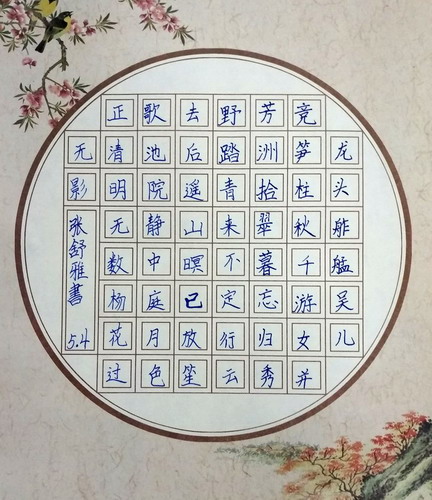 龙头舴艋吴儿
竞笋柱秋千游女并
芳洲拾翠暮忘归秀
野踏青来不定行云
去后遥山暝已放笙
歌池院静中庭月色
正清明无数杨花过
无影
张舒雅書 5.4